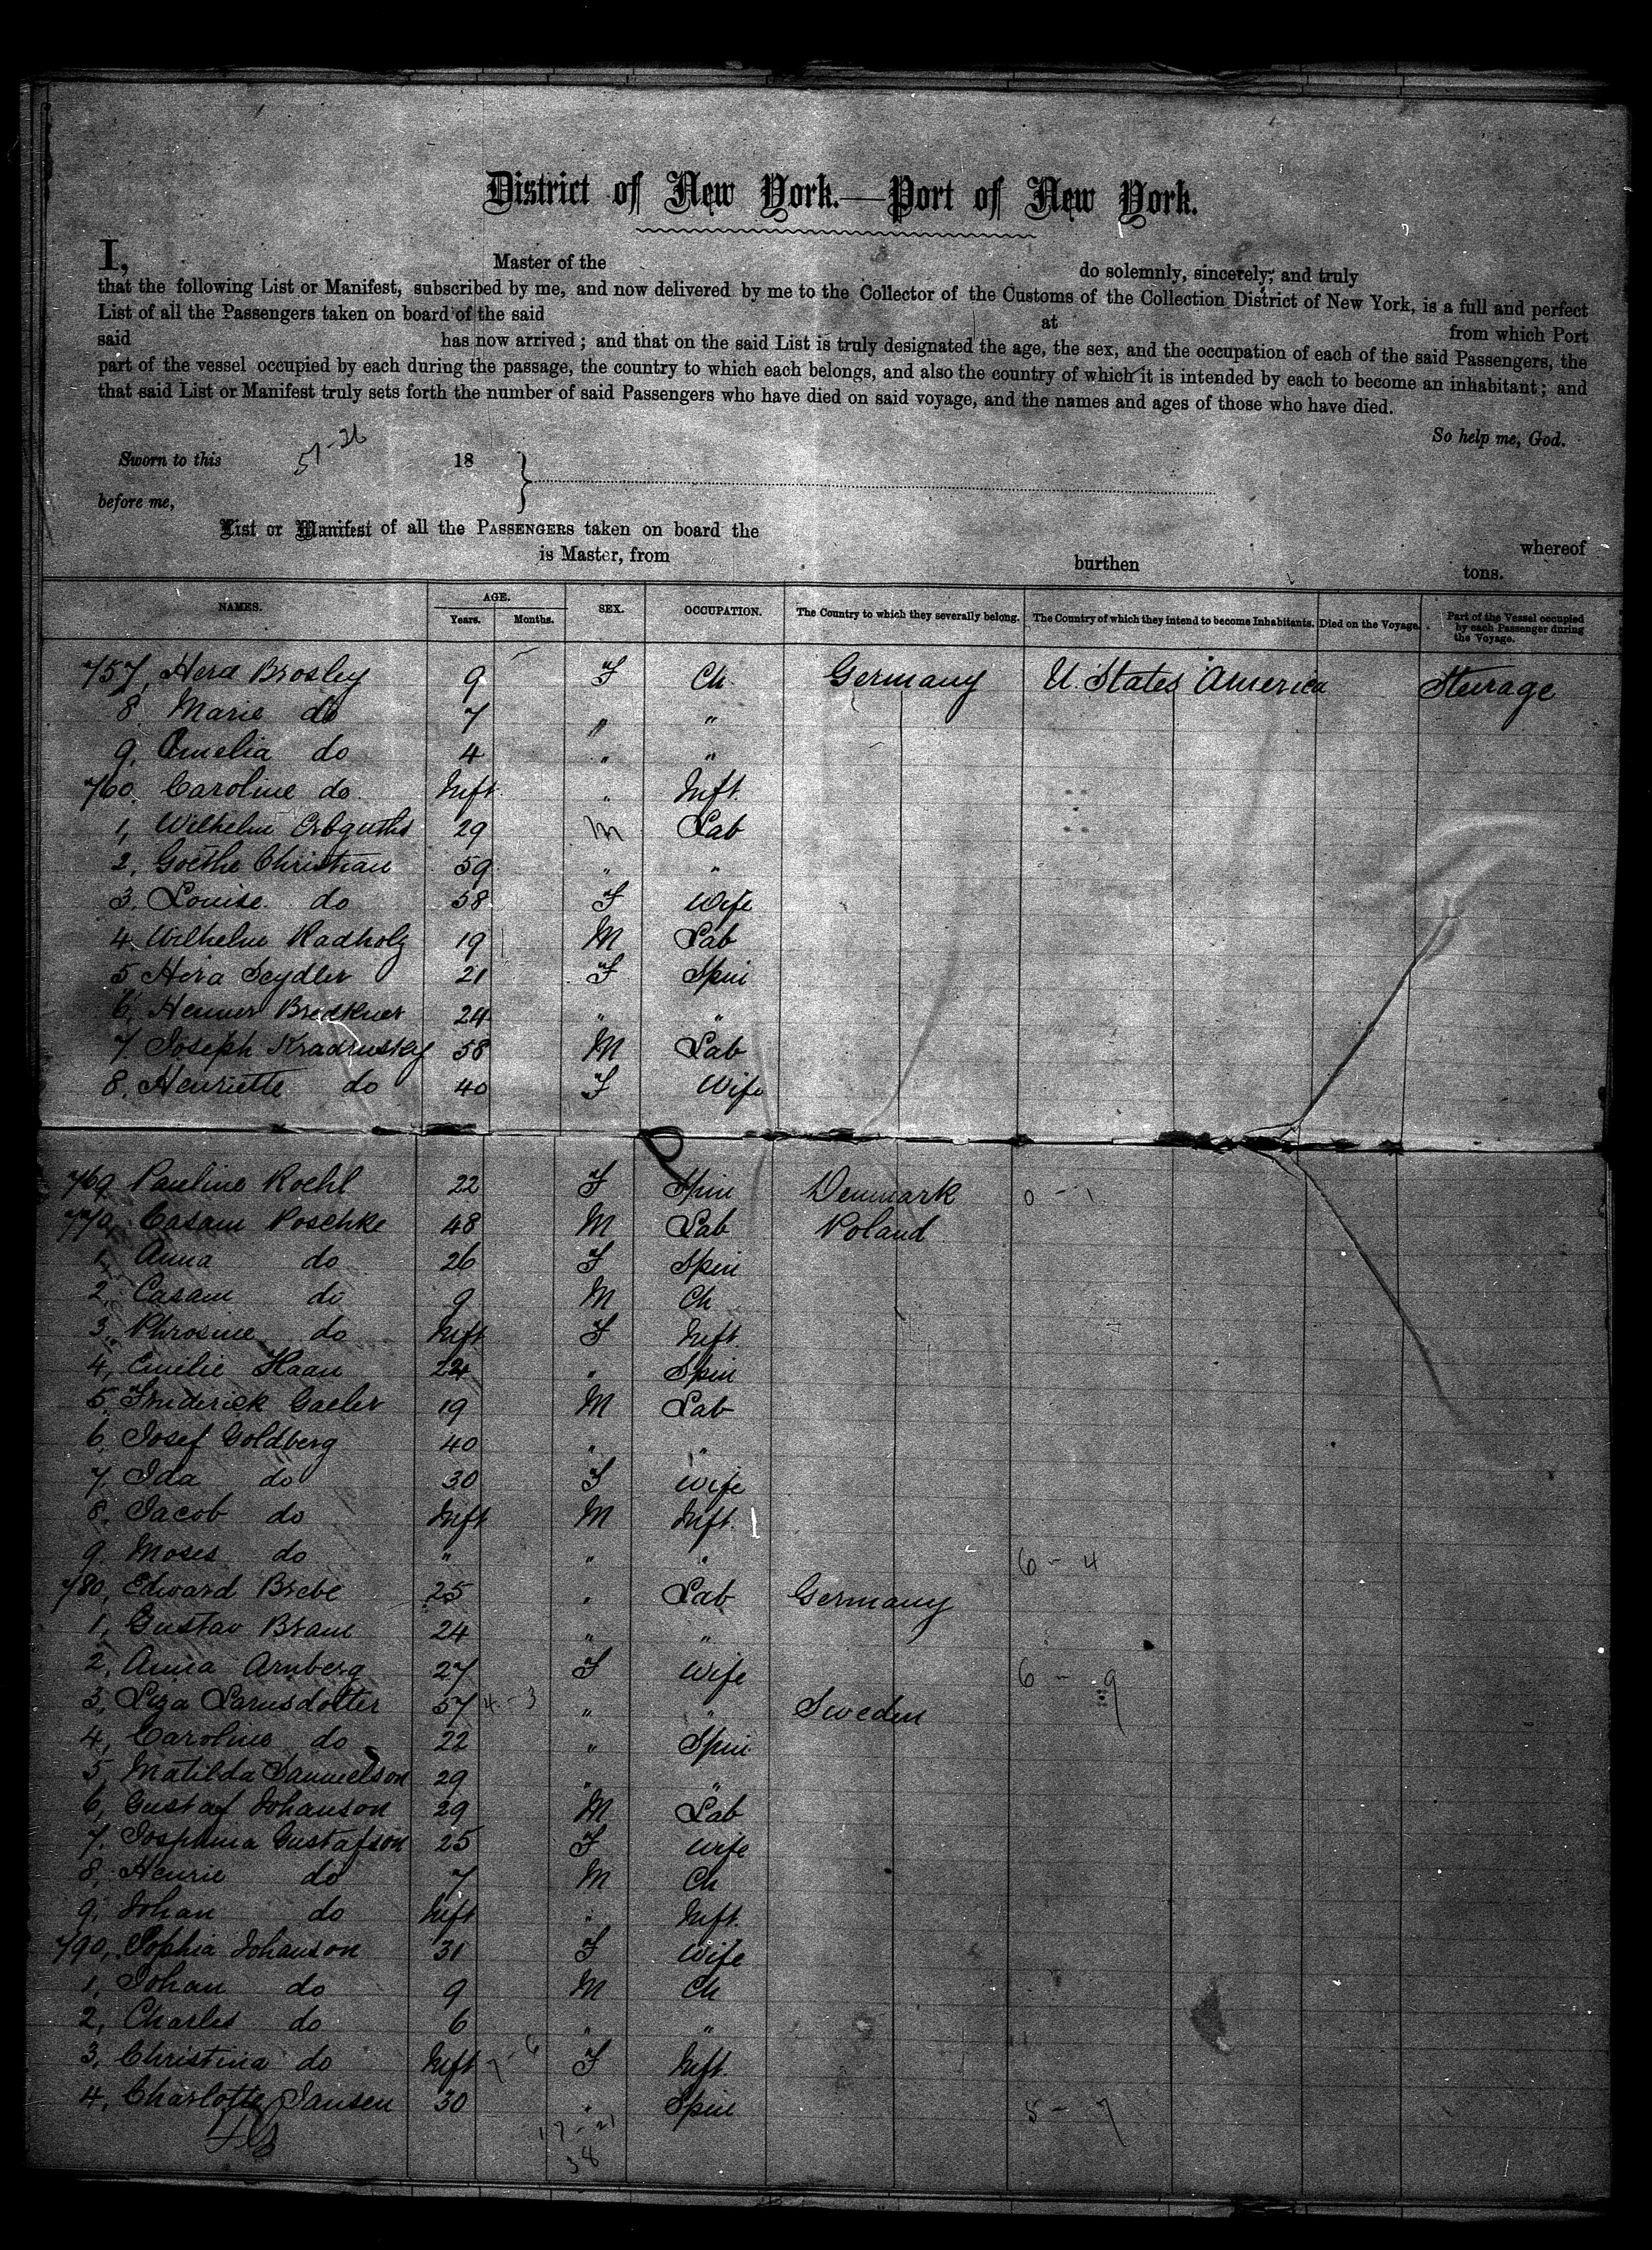 District of New York.—Port of New York.
I, Master of the do solemnly, sincerely, and truly
that the following List or Manifest, subscribed by me, and now delivered by me to the Collector of the Customs of the Collection District of New York, is a full and perfect
List of all the Passengers taken on board of the said at from which Port
said has now arrived; and that on the said List is truly designated the age, the sex, and the occupation of each of the said Passengers, the
part of the vessel occupied by each during the passage, the country to which each belongs, and also the country of which it is intended by each to become an inhabitant; and
that said List or Manifest truly sets forth the number of said Passengers who have died on said voyage, and the names and ages of those who have died.
So help me, God.
Sworn to this 18
before me,
List or Manifest of all the PASSENGERS taken on board the whereof
is Master, from burthen tons.
NAMES. AGE. Years. Months. SEX. OCCUPATION. The Country to which they severally belong. The Country of which they intend to become Inhabitants. Died on the Voyage. Part of the Vessel occupied by each Passenger during the Voyage.
757, Herd Brosley 9 F Ch. Germany U. States America Steerage
8. Marie do 7 " "
9. Amelia do 4 " "
760. Caroline do Inft. " Inft.
1, Wilhelm 29 M Lab
2, Goethe Christian 59 " "
3. Louise do 58 F Wife
4 Wilhelm Radholz 19 M Lab
5, Hera Seydler 21 F Spin
6, Bredkner 24 " "
7. Joseph Kradrusky 58 M Lab
8. Henriette do 40 F Wife
769 Pauline Roehl 22 F Spin Denmark 0 - 1
770, Casam Poschke 48 M Lab Poland
1, Anna do 26 F Spin
2, Casam do 9 M Ch
3, Phrosine do Inft F Inft.
4, Emilie Haan 24 " Spin
5, Frederick Gaeler 19 M Lab
6, Josef Goldberg 40 " "
7. Ida do 30 F Wife
8. Jacob do Inft M Inft.
9. Moses do " " " 6 - 4
780, Edward Brebe 25 " Lab Germany
1, Gustav Braue 24 " "
2, Anna Arnberg 27 F Wife 6 - 9
3, Liza Larusdotter 57 4 - 3 " " Sweden
4, Caroline do 22 " Spin
5, Matilda Samuelson 29 " "
6, Gustaf Johanson 29 M Lab
7. Josphina Gustafson 25 F Wife
8, Henrie do 7 M Ch
9, Johan do Inft " Inft.
790, Sophia Johanson 31 F Wife
1, Johan do 9 M Ch
2, Charles do 6 " "
3, Christina do Inft 7 - 6 F Inft.
4, Charlotte Jansen 30 " Spin 5 - 7
17 - 21
38